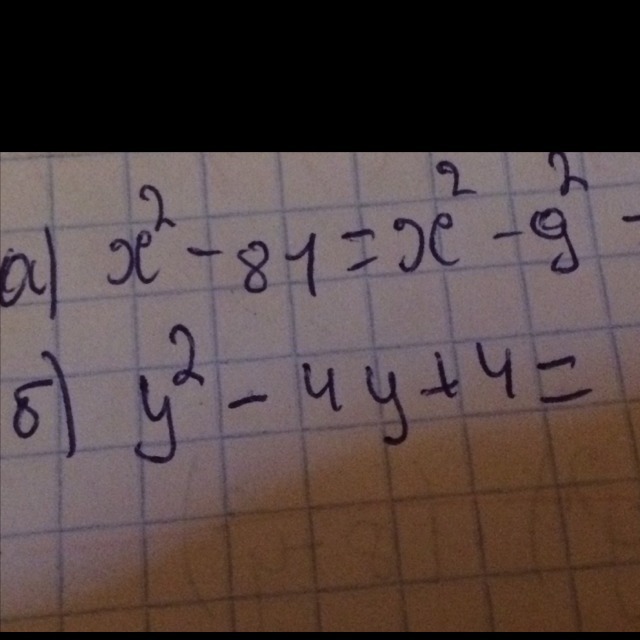 а) x² - 81 = x² - 9² -
б) y² - 4y + 4 =